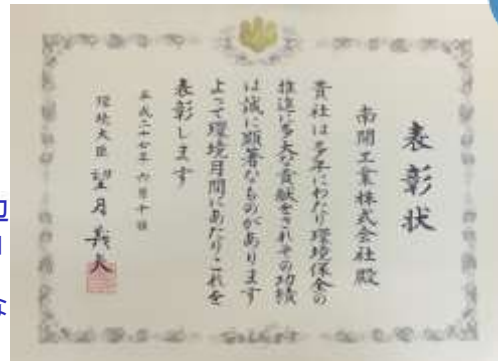 表彰状
南開工業株式会社殿
貴社は多年にわたり環境保全の
推進に多大な貢献をされその功績
は誠に顕著なものがあります
よって環境月間にあたりこれを
表彰します
平成二十七年六月十日
環境大臣 望月義夫
な